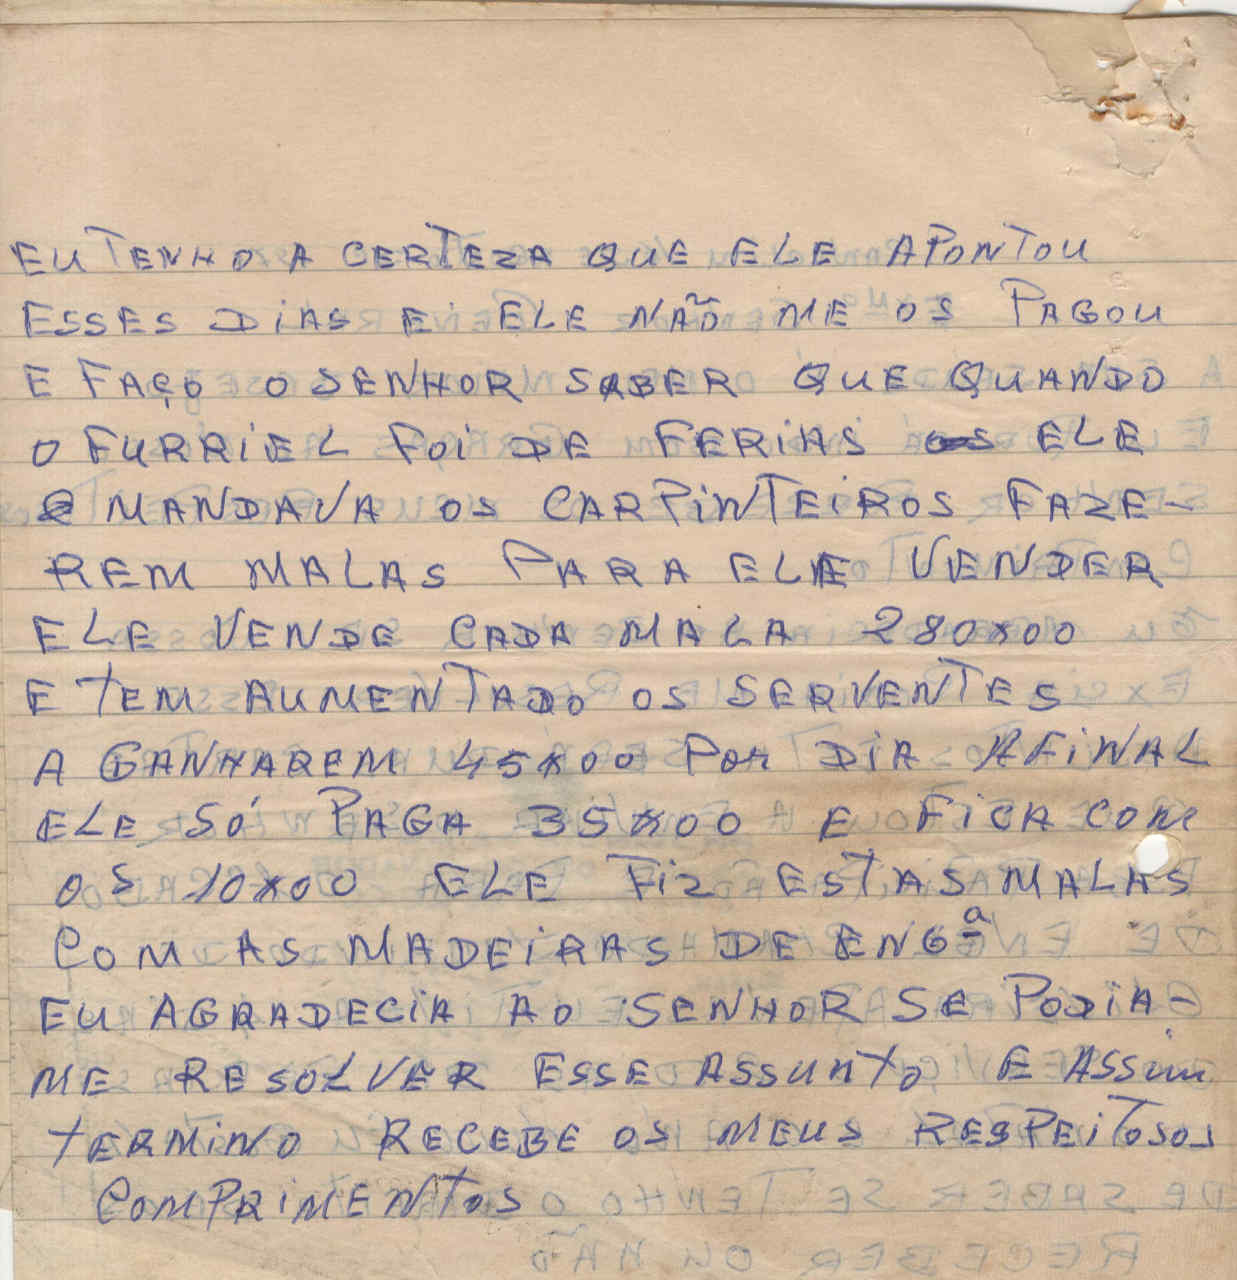 EU TENHO A CERTEZA QUE ELE APONTOU
ESSES DIAS E ELE NÃO ME OS PAGOU
E FAÇO O SENHOR SABER QUE QUANDO
O FURRIEL FOI DE FERIAS ELE
MANDAVA OS CARPINTEIROS FAZE-
REM MALAS PARA ELE VENDER
ELE VENDE CADA MALA 280x00
E TEM AUMENTADO OS SERVENTES
A GANHAREM 45x00 POR DIA AFINAL
ELE SÓ PAGA 35x00 E FICA COM
OS 10x00 ELE FIZ ESTAS MALAS
COM AS MADEIRAS DE ENGª
EU AGRADECIA AO SENHOR SE PODIA-
ME RESOLVER ESSE ASSUNTO E ASSIM
TERMINO RECEBE OS MEUS RESPEITOSOS
COMPRIMENTOS